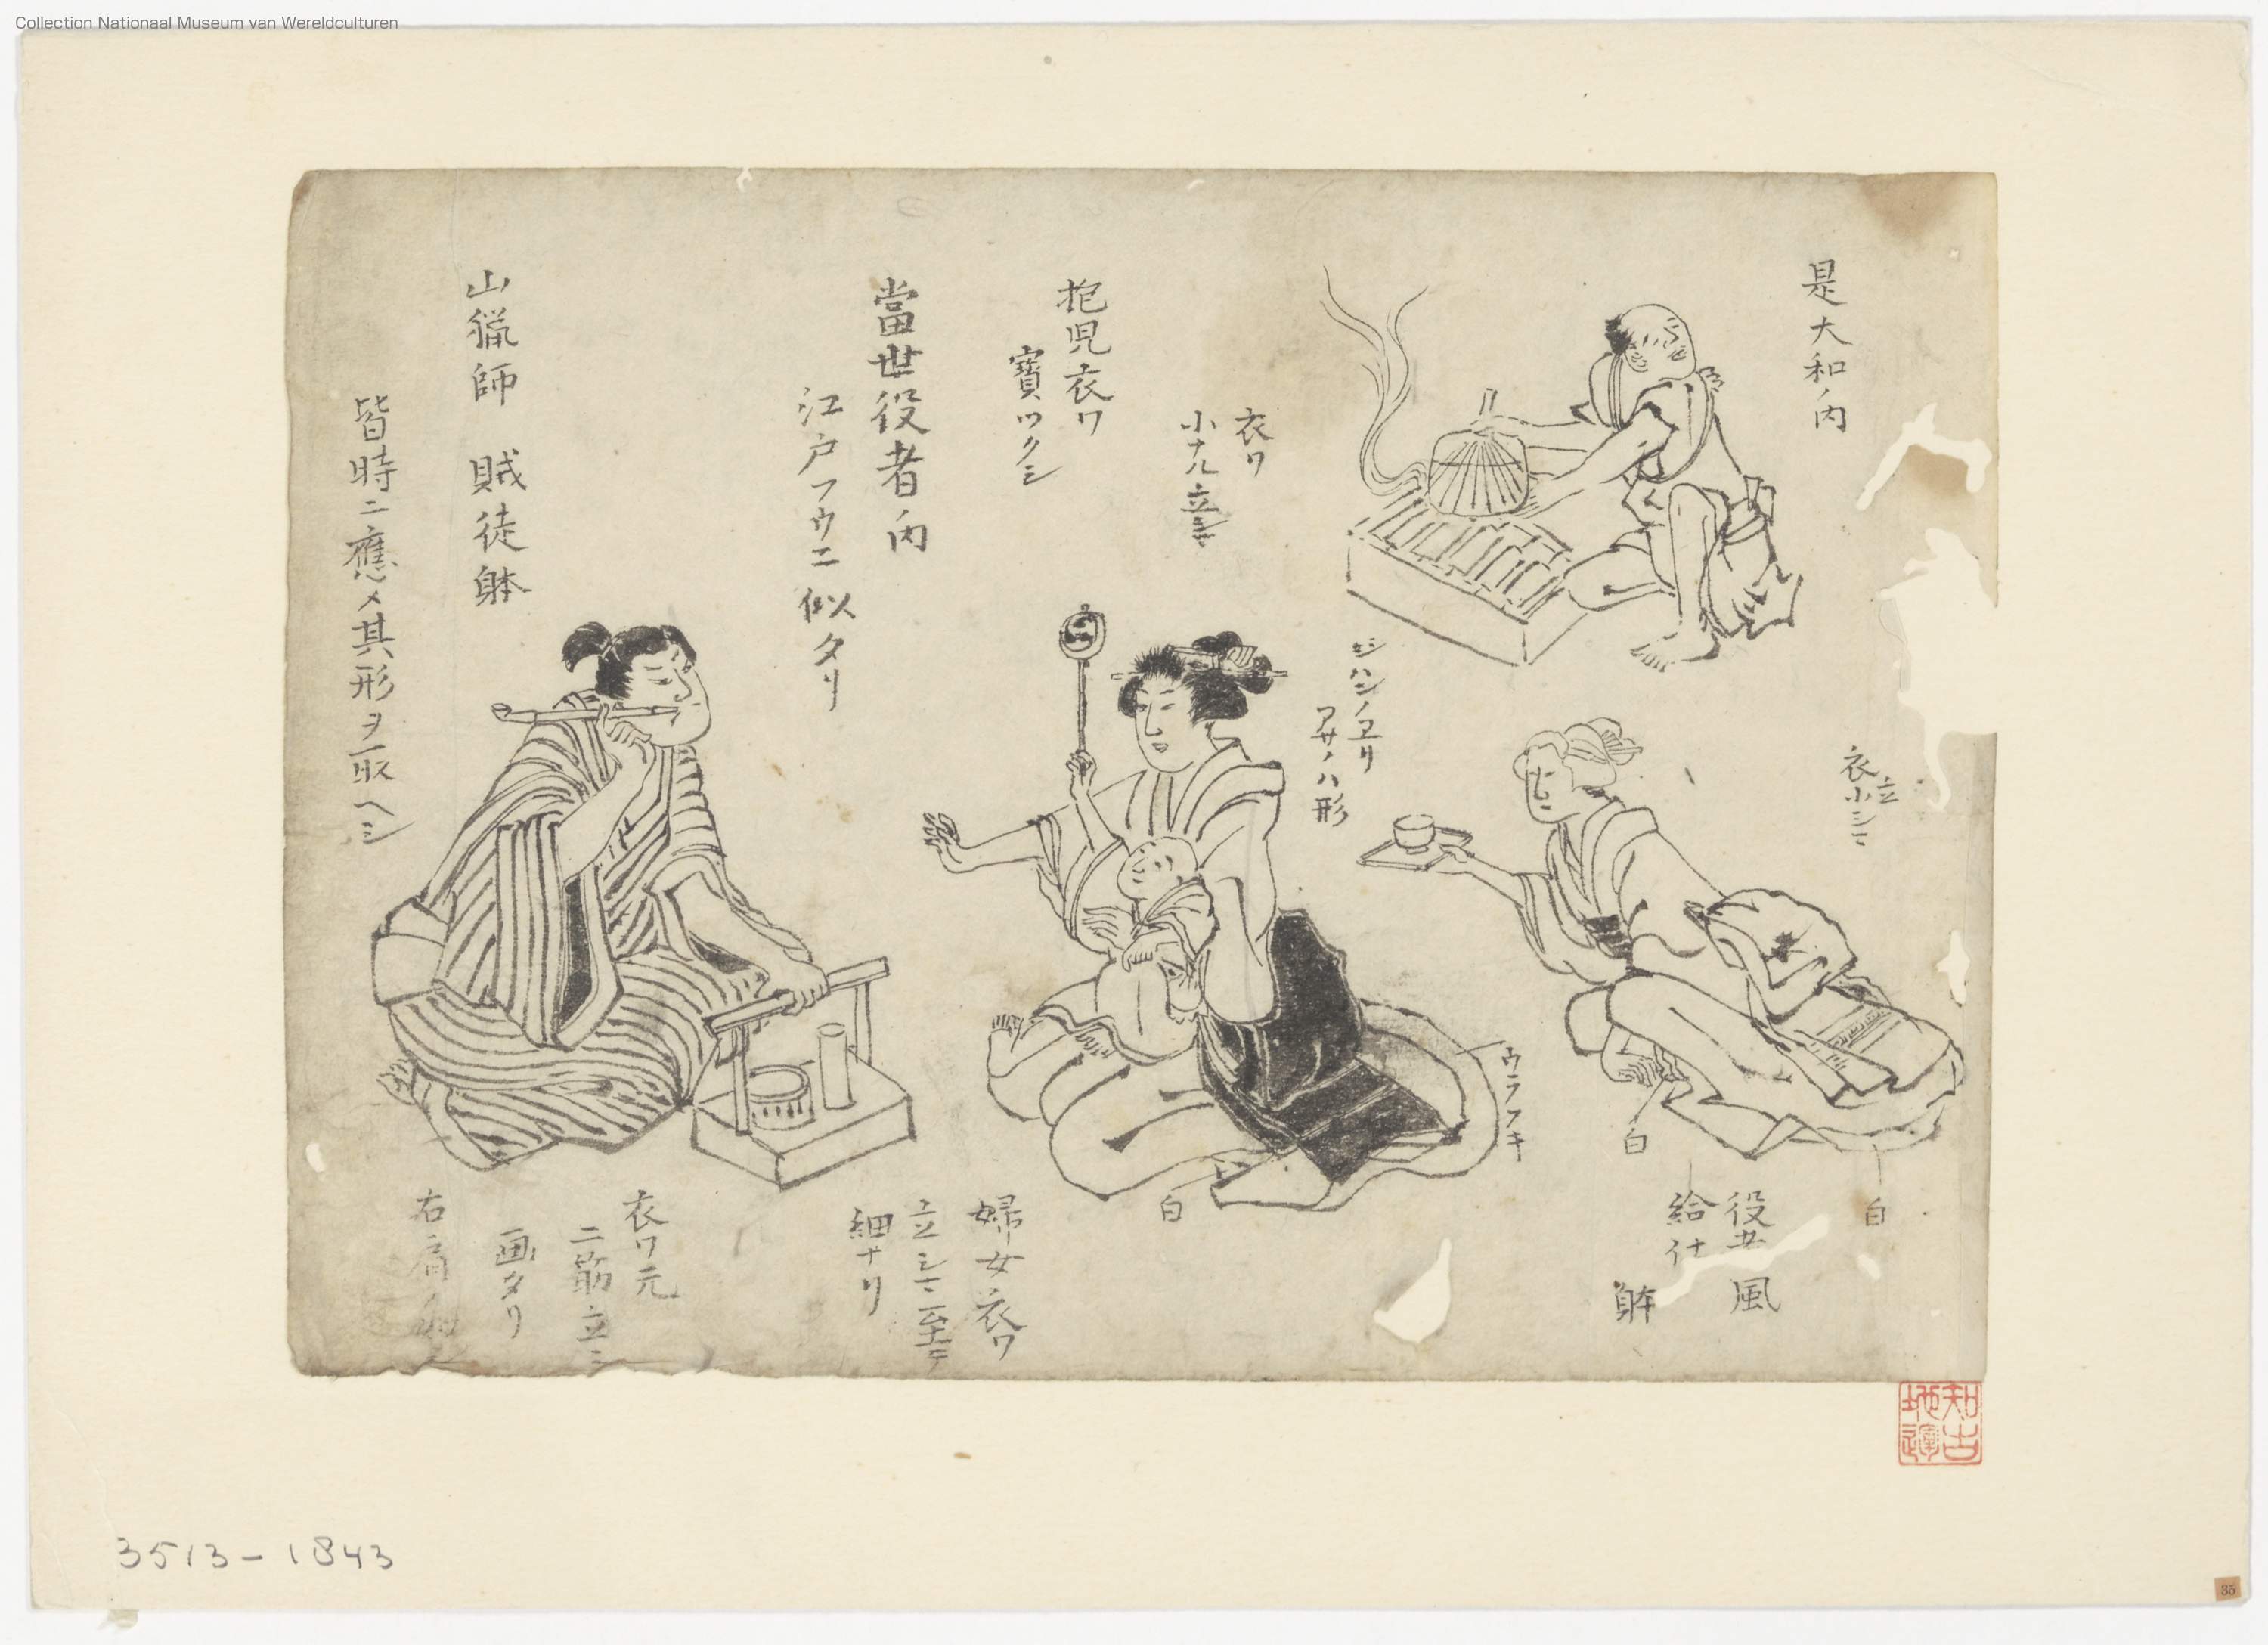 Collection Nationaal Museum van Wereldculturen
是大和ノ内
衣
立
小シマ
衣ワ
小ナル立
ジハンノヱリ
アサノハ形
抱児衣ワ
寳ツクシ
當世役者ノ内
江戸フウニ似タリ
山猟師 賊徒躰
皆時ニ應メ其形ヲ取ヘシ
ウラフキ
白
白
白
役
風
給仕
躰
婦女ノ衣ワ
立シマ至テ
細ナリ
衣ワ元
二筋立シ
画タリ
右肩ノ
知古
地
3513-1843
35